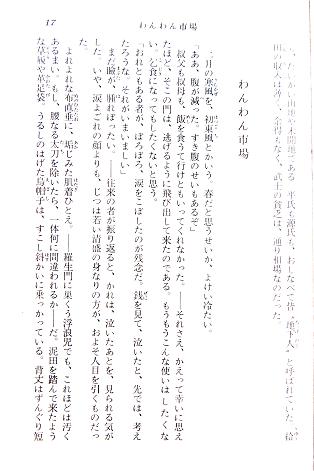 わんわん市場
17
、たいがい山地か未開地である。平氏も源氏も、おしなべて昔〝地き人〟と呼ばれていた。給
田の収入は上々、余得もなく、武士の貧乏は、通り相場なのだった。
わんわん市場
二月の寒風を、初東風とかいう。春だと思うせいか、よけい冷たい。
「ああ、腹が減った。すき腹のせいもあるぞ」
叔父も叔母も、飯を食うて行けともいってくれなかった。――それさえ、かえって幸いに思え
たほど、そこの門は、逃げるように飛び出して来たのである。もうもうこんな使いはしたくな
い。乞食になってもしたくないと思う。
「おれともある者が、ぽろぽろ、涙をこぼしたのが残念だ。銭を見て、泣いたと、先では、考え
たろうな。それがいまいましい」
まだ瞼が、腫れぼったい。――往来の者が振り返ると、かれは、泣いたあとを、見られる気が
した。いや、涙よごれの顔よりも、じつは若い清盛の身なりの方が、およそ人目を引くものだっ
た。
よれよれな布直垂に、垢じみた肌着ひとえ。――羅生門に巣くう浮浪児でも、これほどは汚く
あるまい。もし、腰なる太刀を除いたら、一体何に間違われるか――だ。泥田を踏んで来たよう
な草履や革足袋。うるしのはげた烏帽子は、すこし斜かいに乗っかっている。背丈はずんぐり短